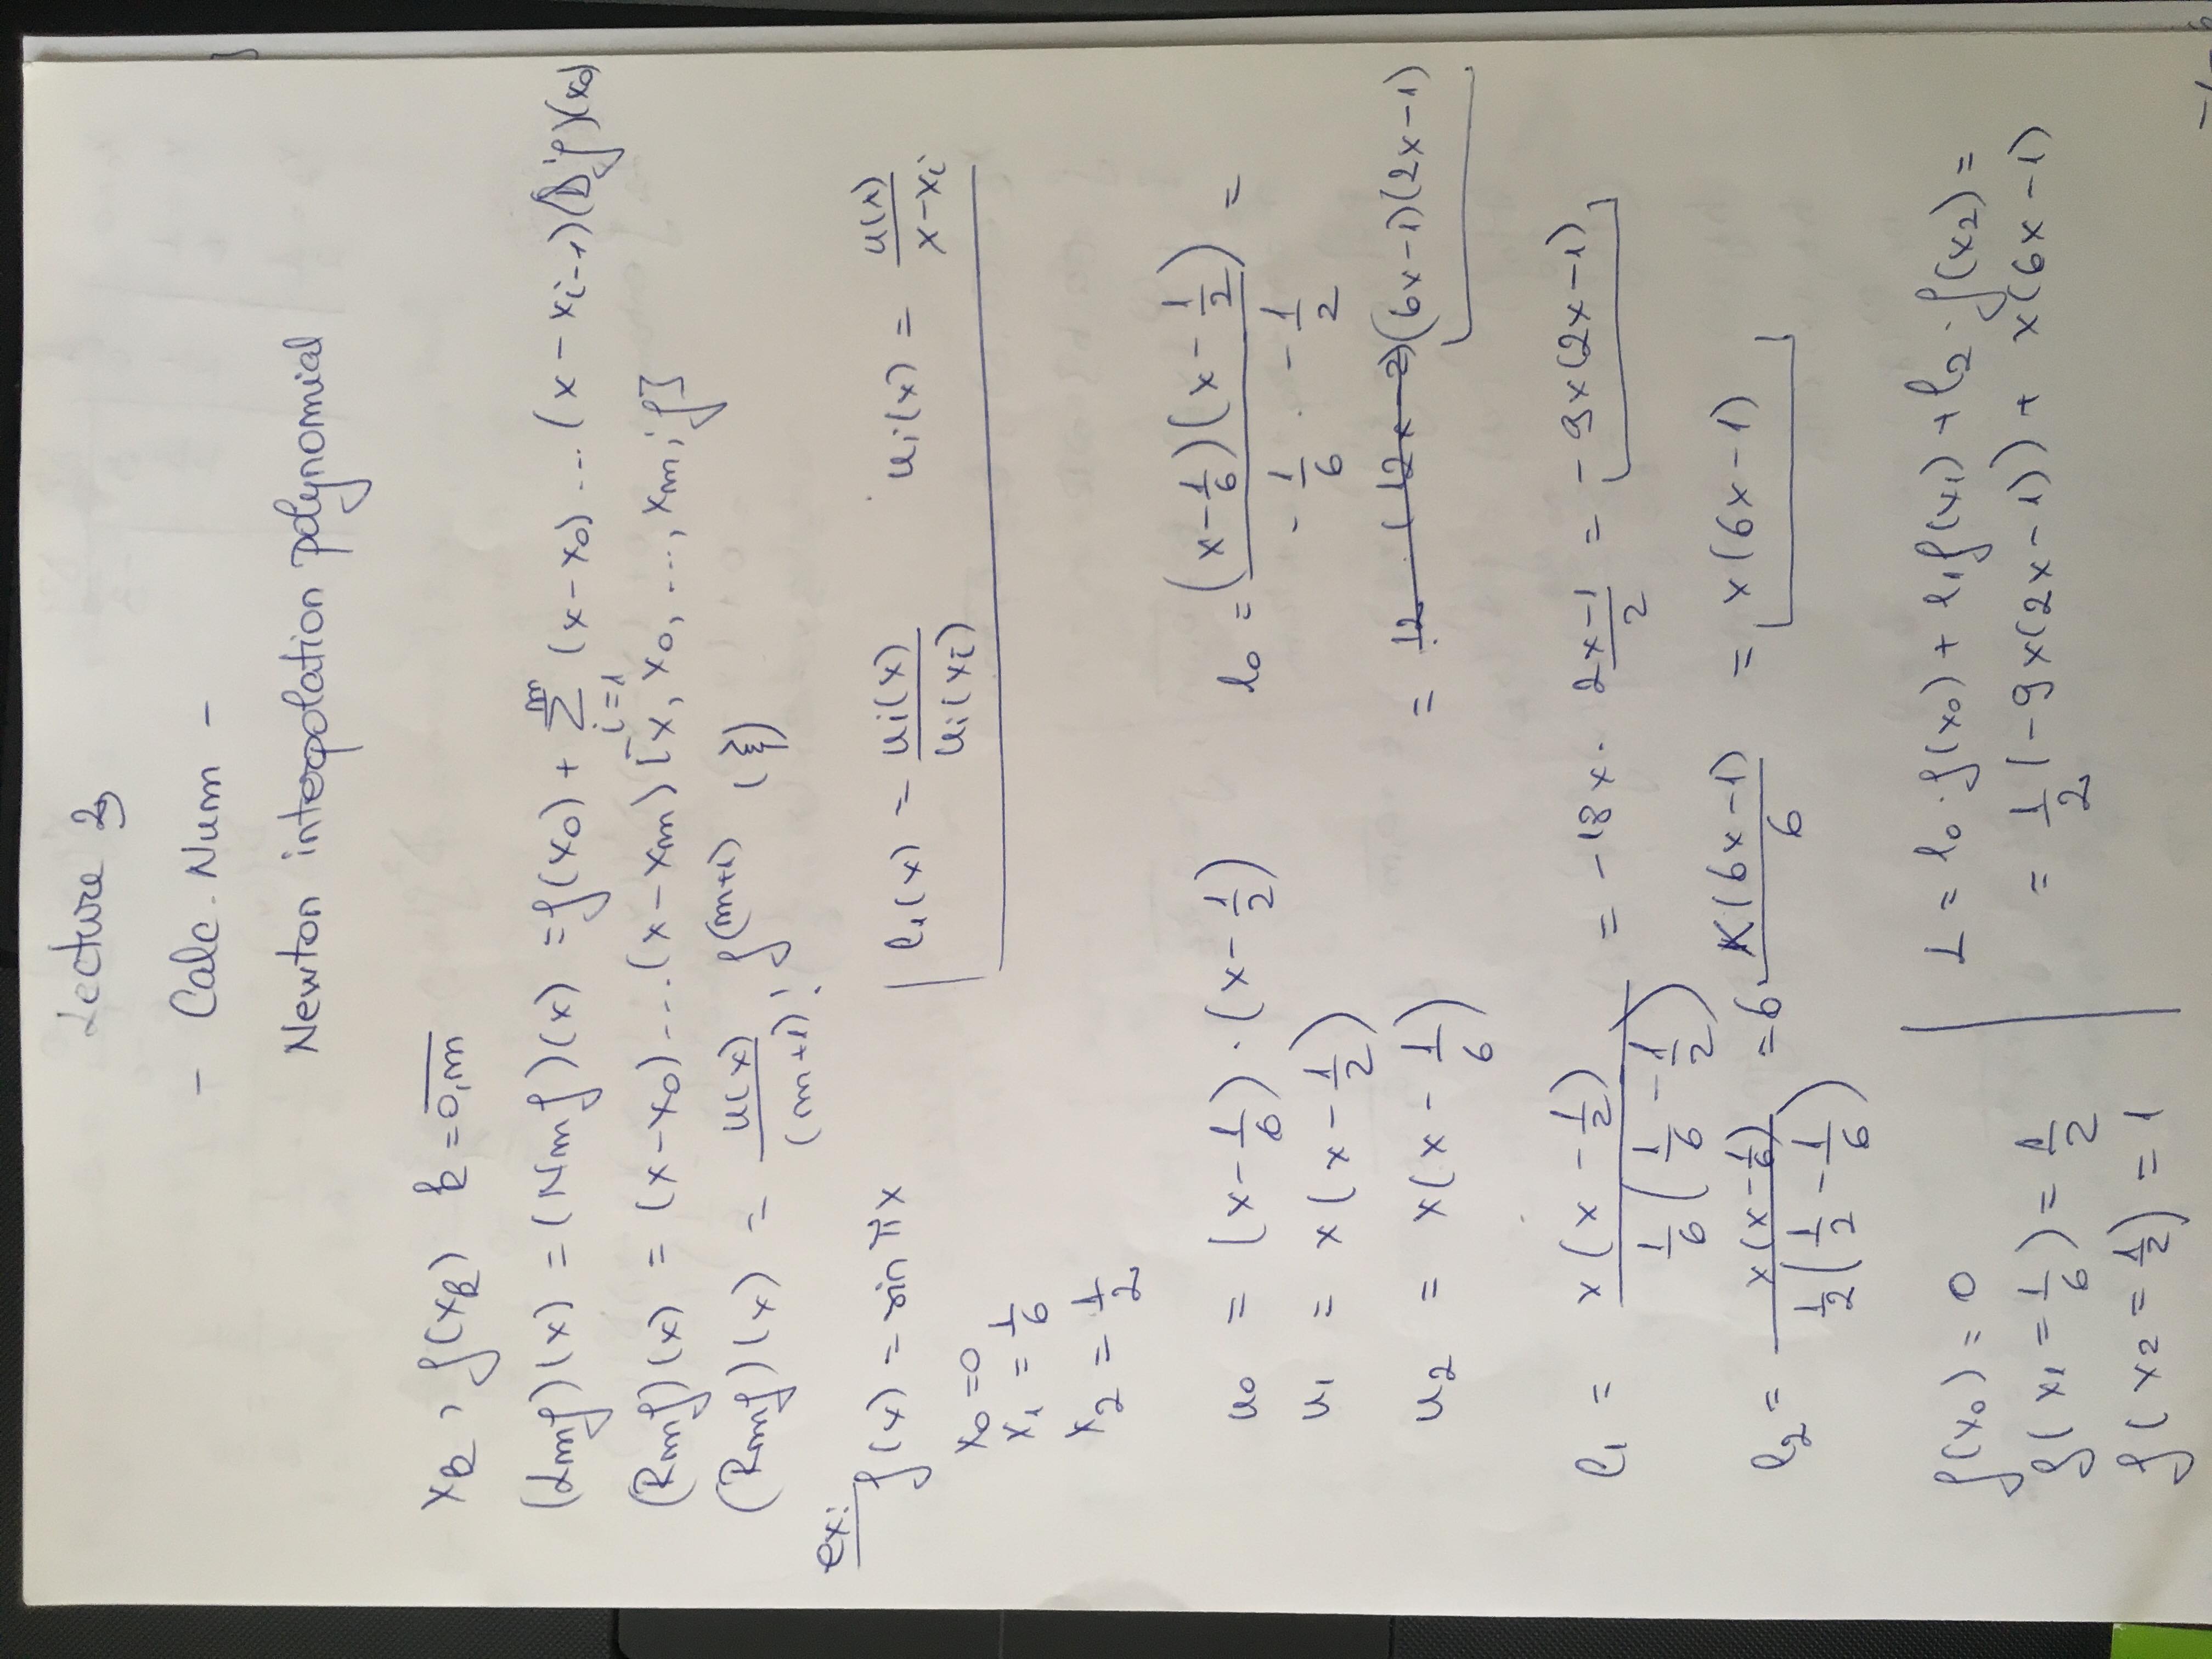 Lecture 3
- Calc. Num -
Newton interpolation polynomial
x_k, f(x_k) k = \overline{0,m}
(Lmf)(x) = (Nmf)(x) = f(x_0) + \sum_{i=1}^{m} (x-x_0) ... (x-x_{i-1})(D^i f)(x_0)
(Rmf)(x) = (x-x_0)...(x-x_m) [x, x_0, ..., x_m; f]
(Rmf)(x) = \frac{u(x)}{(m+1)!} f^{(m+1)} (ξ)
ex:
f(x) = sin πx
l_i(x) = \frac{u_i(x)}{u_i(x_i)} u_i(x) = \frac{u(x)}{x-x_i}
x_0 = 0
x_1 = \frac{1}{6}
x_2 = \frac{1}{2}
u_0 = (x-\frac{1}{6}) · (x-\frac{1}{2})
u_1 = x(x-\frac{1}{2})
u_2 = x(x-\frac{1}{6})
l_0 = \frac{(x-\frac{1}{6})(x-\frac{1}{2})}{-\frac{1}{6} · -\frac{1}{2}} =
= (6x-1)(2x-1)
l_1 = \frac{x(x-\frac{1}{2})}{\frac{1}{6}(\frac{1}{6}-\frac{1}{2})} = -18x · \frac{2x-1}{2} = -9x(2x-1)
l_2 = \frac{x(x-\frac{1}{6})}{\frac{1}{2}(\frac{1}{2}-\frac{1}{6})} = 6 · \frac{x(6x-1)}{6} = x(6x-1)
f(x_0) = 0
f(x_1 = \frac{1}{6}) = \frac{1}{2}
f(x_2 = \frac{1}{2}) = 1
L = l_0 · f(x_0) + l_1 f(x_1) + l_2 · f(x_2) =
= \frac{1}{2}(-9x(2x-1)) + x(6x-1)